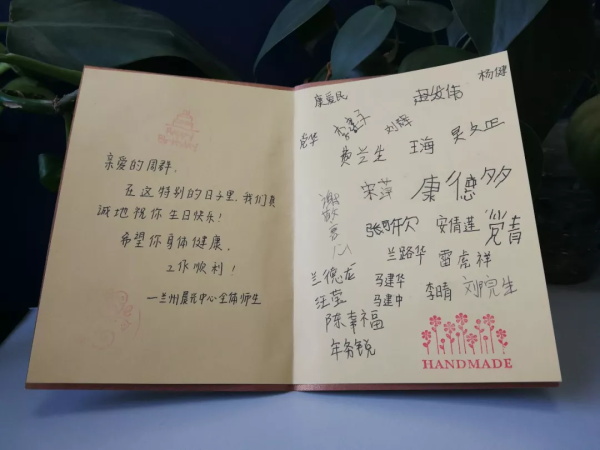 亲爱的周群,
在这特别的日子里,我们真
诚地祝你生日快乐!
希望你身体健康,
工作顺利!
—兰州晨元中心全体师生
康爱民
赵发伟
杨健
刘辉
党华
费兰生
王海
吴文正
宋萍
康德多
安倩莲
党青
兰路华
雷虎祥
兰德龙
马建华
李晴
刘晥生
汪莹
马建中
陈幸福
年务锐
HANDMADE